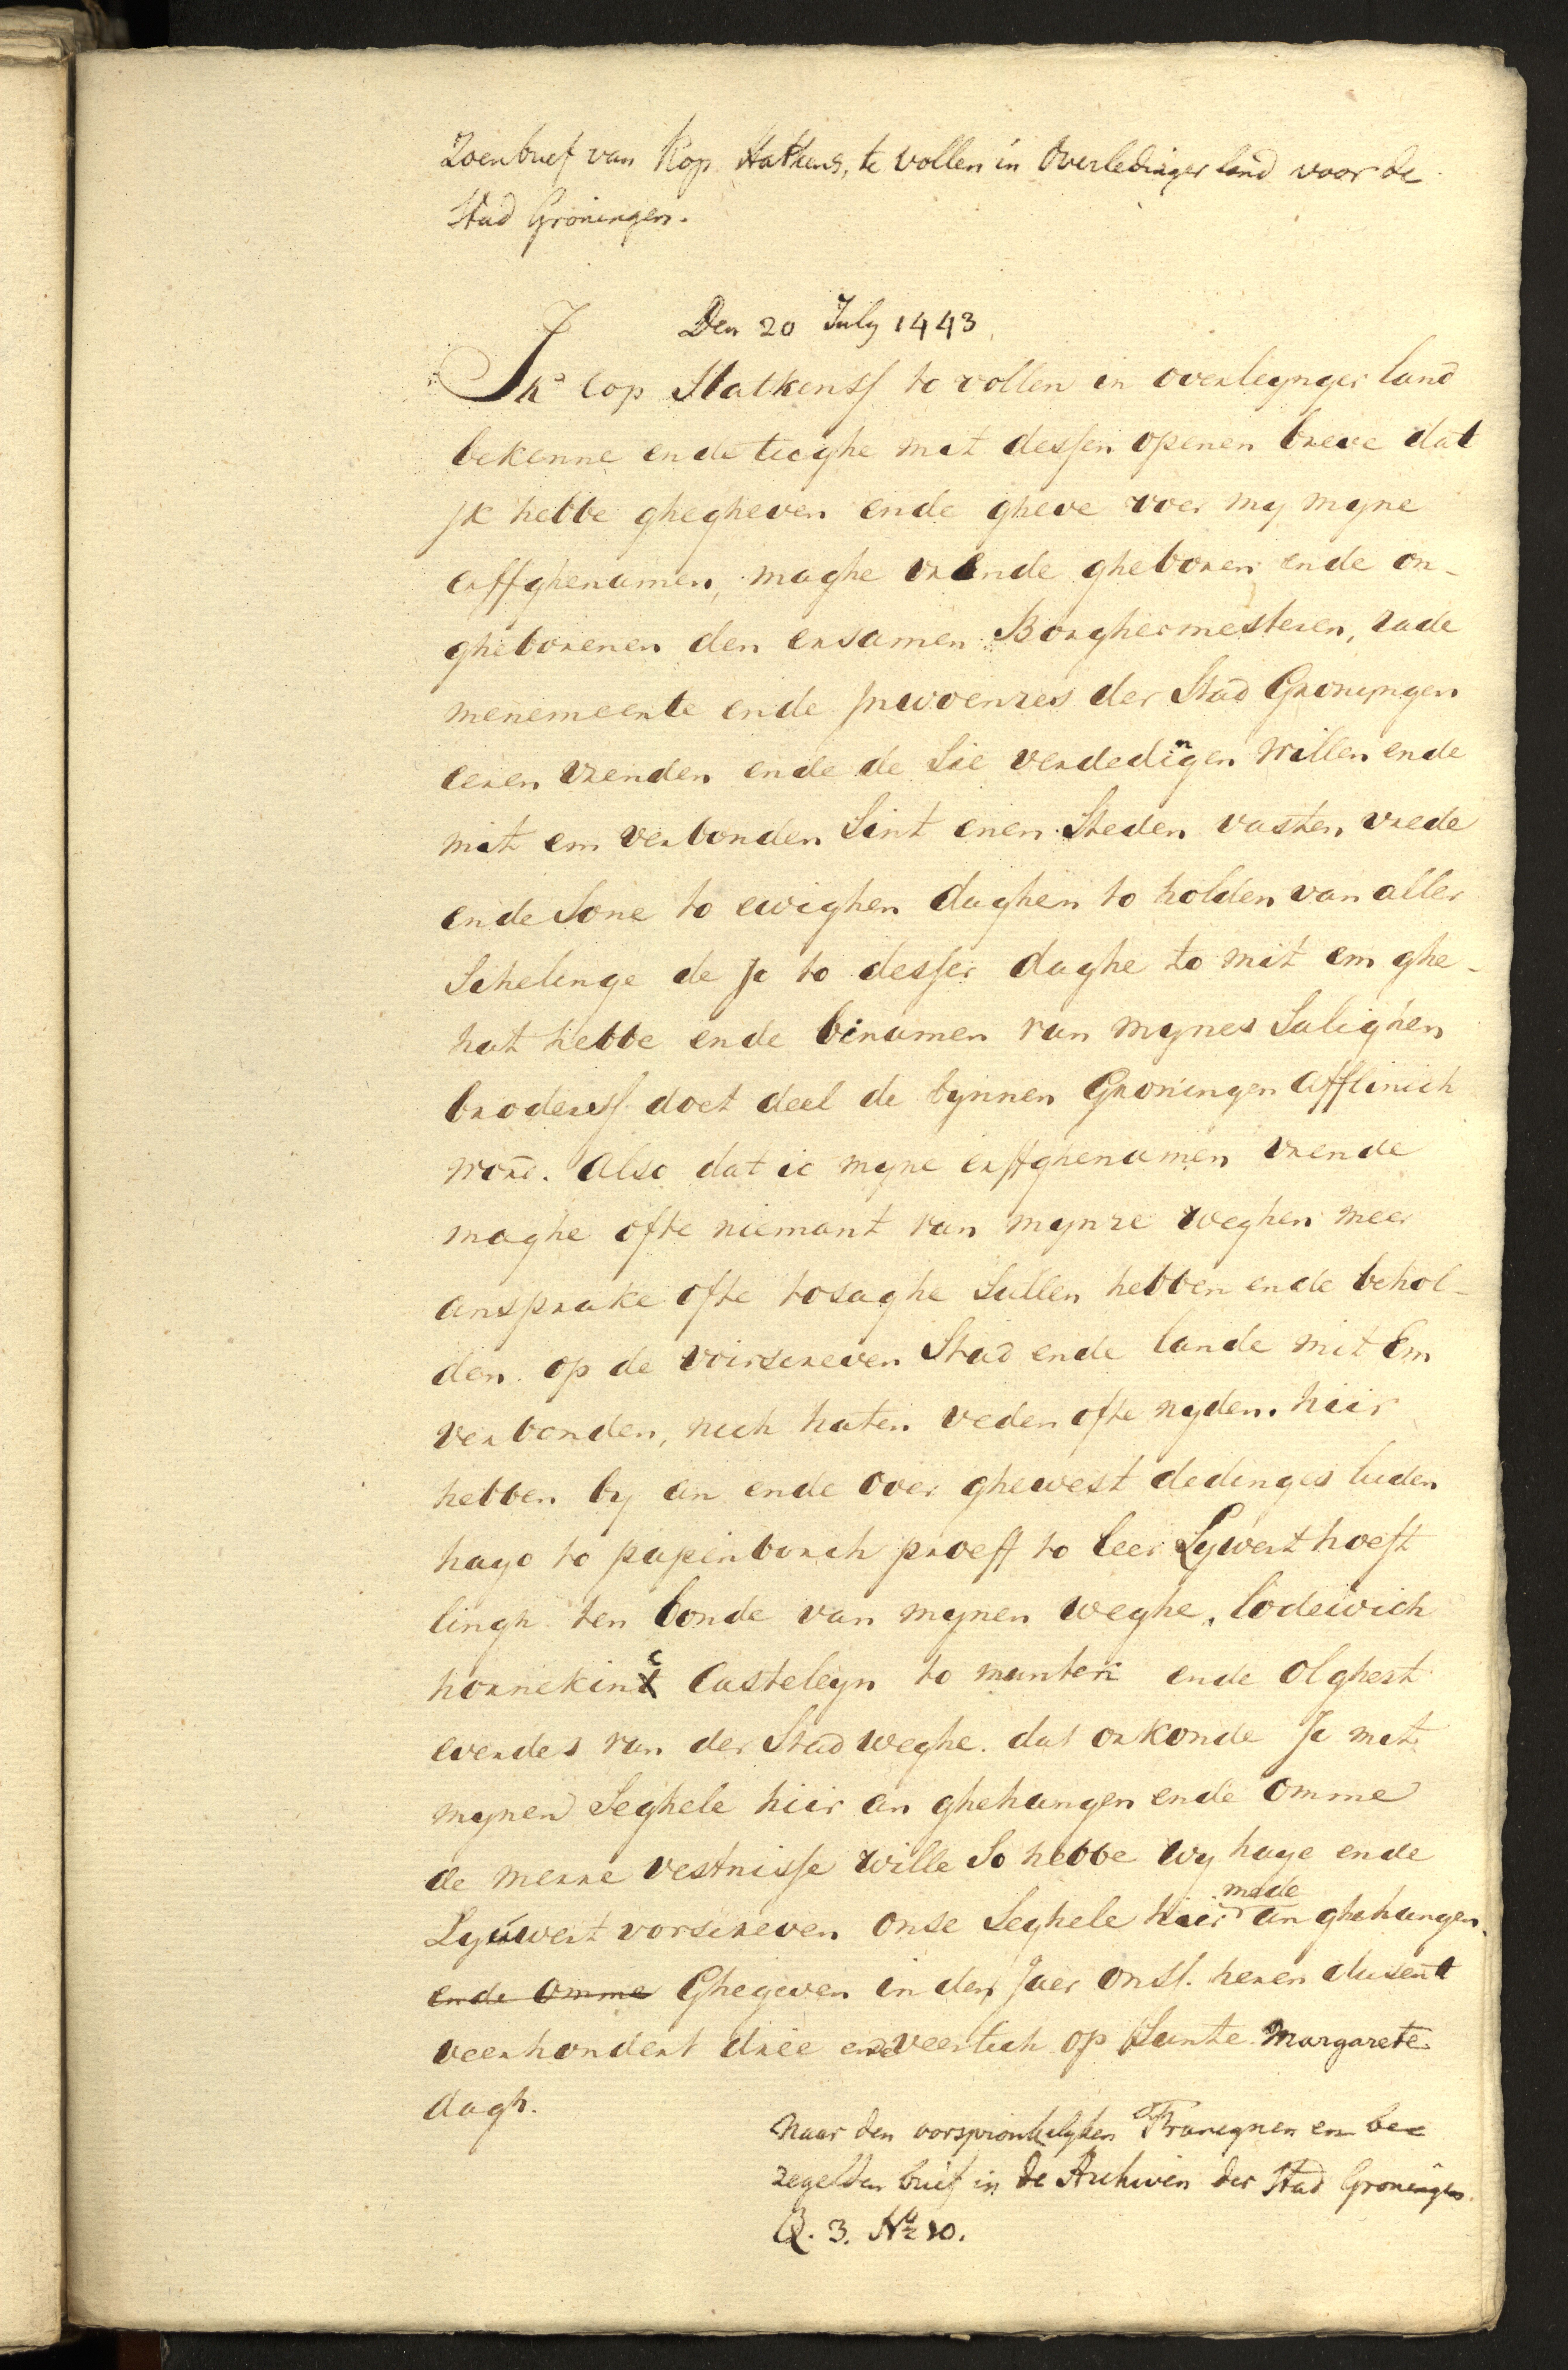 Zoenbrief van Kop Hatkens, te Vollen in Overledinger land voor de
Stad Groningen.
Den 20 July 1443.
Ik Cop Hatkenss to vollen in overleynger land
bekenne ende tughe mit dessen openen breve dat
jk hebbe ghegheven ende gheve voer my myne
erffghenamen, maghe vrende gheboren ende on-
gheborenen den ersamen Borghermesteren, rade
menemeente ende jnwoenres der Stad Gronyngen
eeren vrenden ende de Sie verdedingen willen ende
mit em verbonden Sint enen Steden vasten vrede
ende Sone to ewighen daghen to holden van aller
Schelinge de Jc to desser daghe to mit em ghe-
hat hebbe ende binamen van mynes Salighen
broderss doet deel de bynnen Groningen afflinich
word. Also dat ic myne erffghenamen vrende
maghe ofte niemant van mynre weghen meer
ansprake ofte tosaghe Sullen hebben ende behol-
den op de voirscreven Stad ende lande mit Em
verbonden, noch haten veden ofte nyden. hiir
hebben by an ende over ghewest dedinges luden
hayo to papenborch proeff to leer Lywert hoeft
lingh ten bonde van mynen weghe, lodewich
hornekinc Casteleyn to munten ende Olghert
everdes van der Stad weghe. dat orkonde Jc mit
mynen Seghele hiir an ghehangen ende omme
de merre vestnisse wille So hebbe wy haye ende
Lyuwert vorscreven onse Seghele hiir mede an ghehangen.
ende omme Ghegeven in den Jaer onss. heren dusent
veerhondert dree ende veertich op Sunte Margarete
dagh.
Naar den oorspronkelyken Francynen en be-
zegelden brief in de Archiven der Stad Groningen.
Q. 3. No 10.